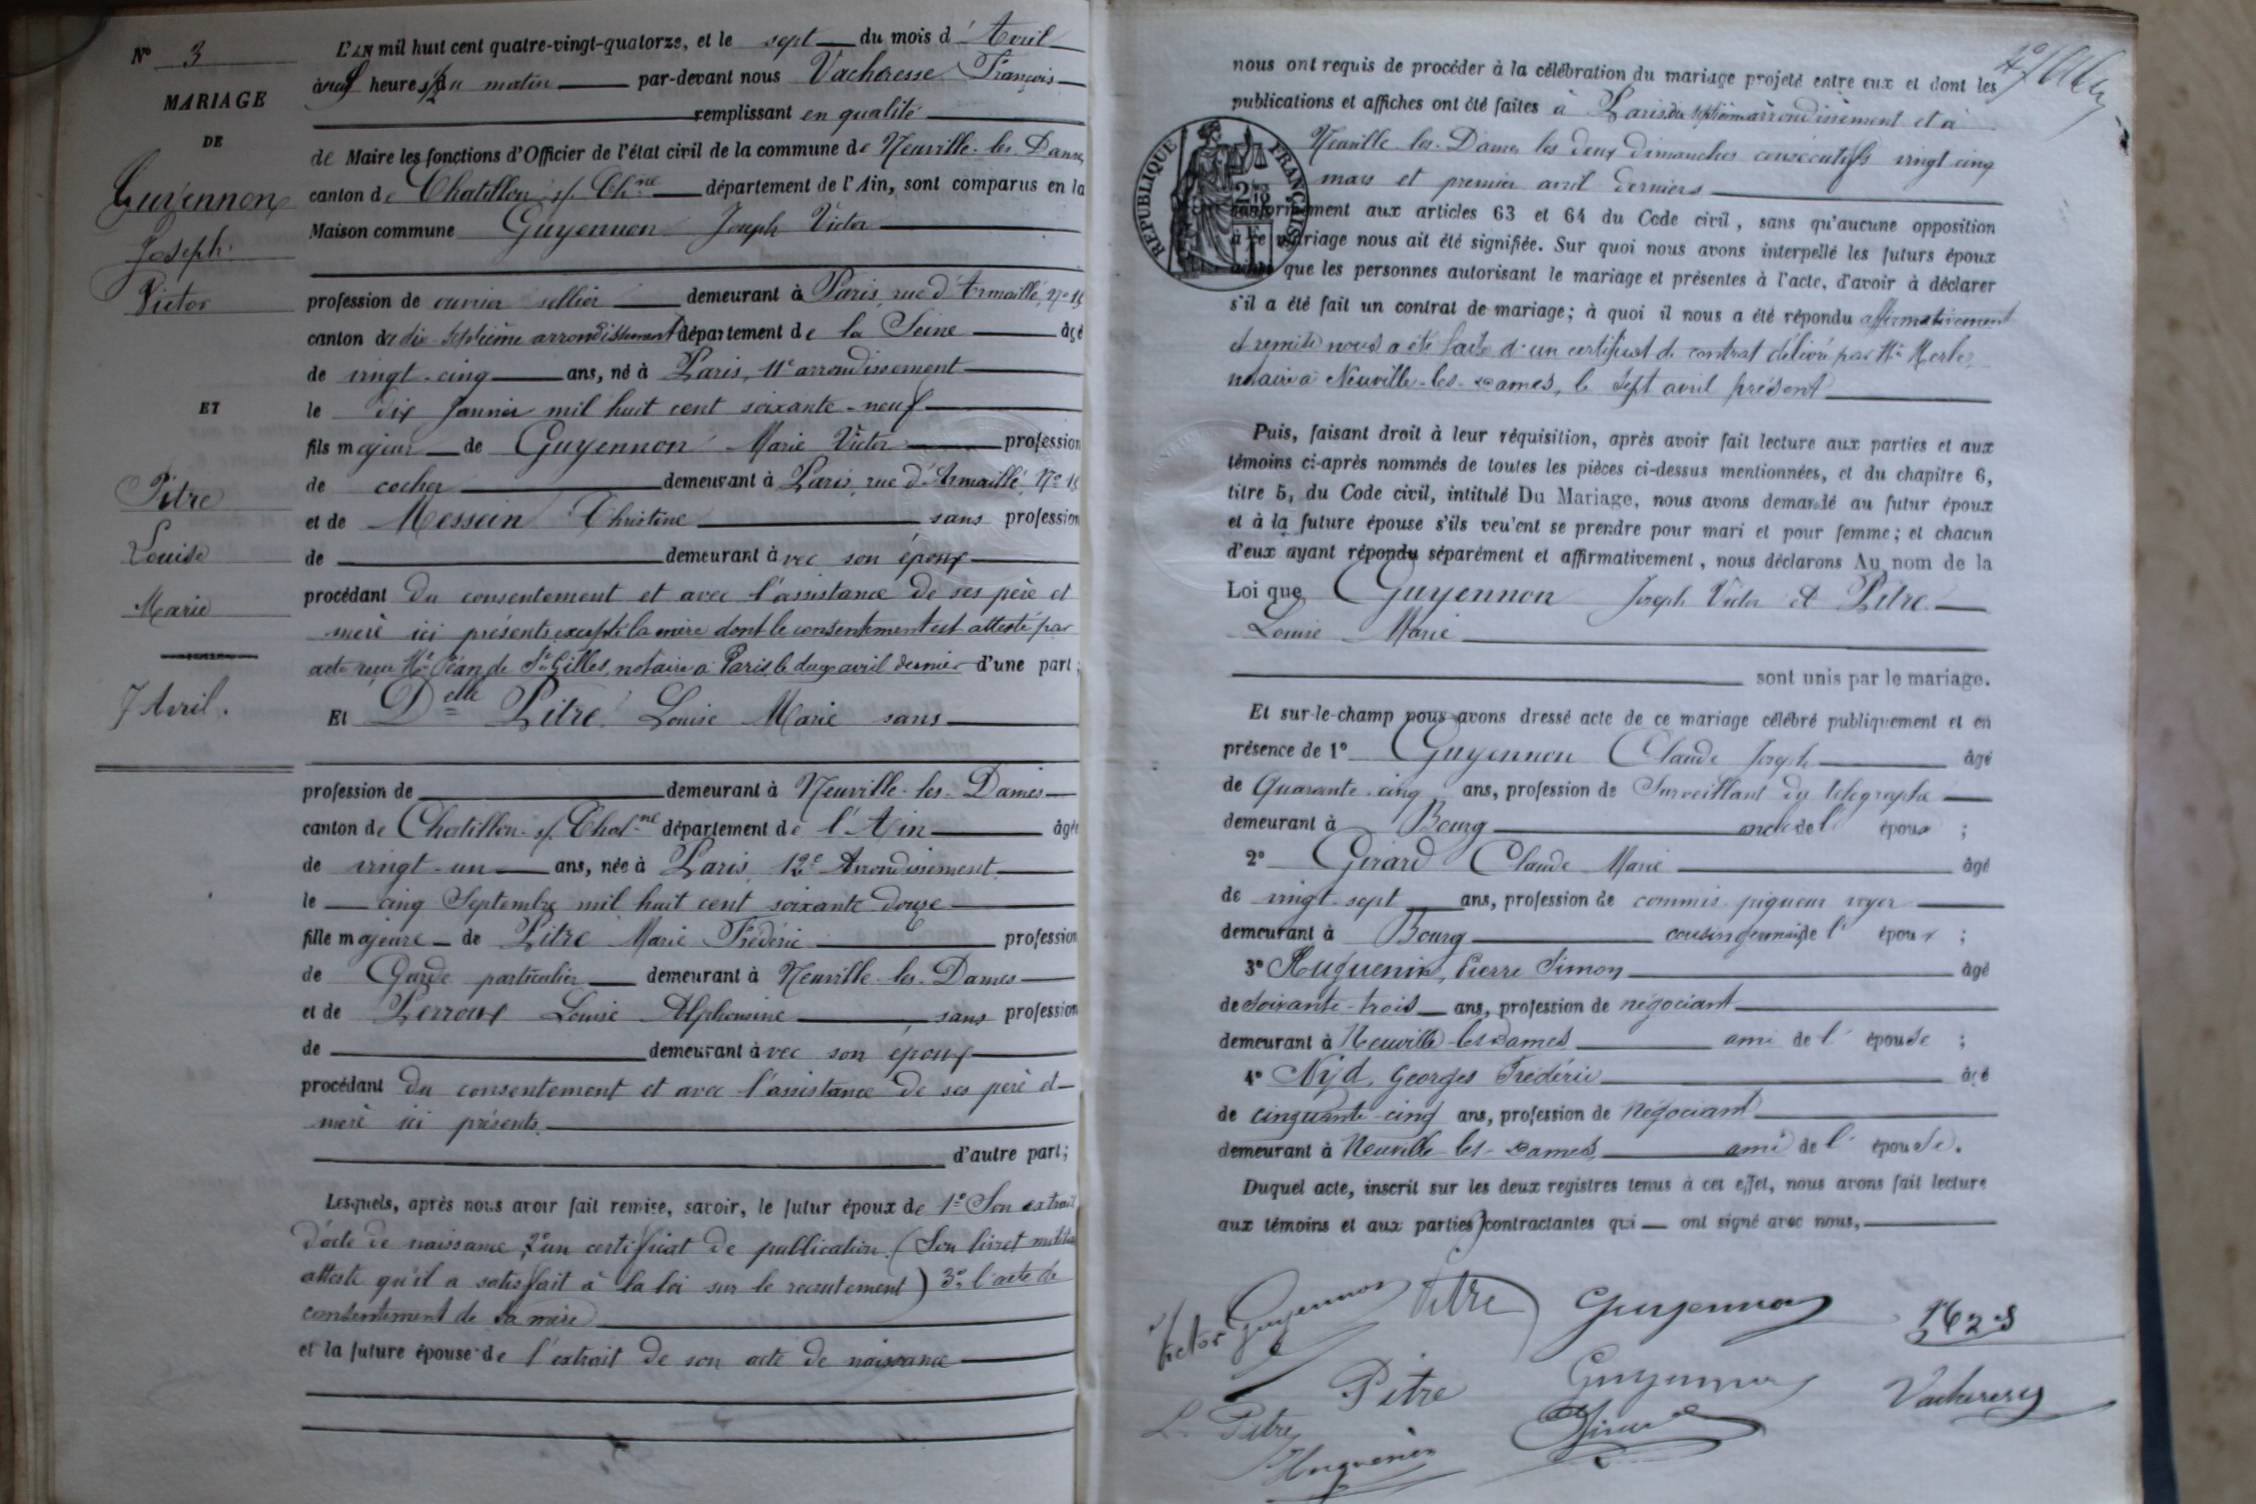 N° 3
MARIAGE
DE
Guyennon
Joseph
Victor
ET
Pitre
Louise
Marie
7 Avril.
L'AN mil huit cent quatre-vingt-quatorze, et le sept du mois d'Avril
à neuf heures du matin par-devant nous Vacheresse François
remplissant en qualité
de Maire les fonctions d'Officier de l'état civil de la commune de Neuville-les-Dames
canton de Chatillon s/ Ch.ne département de l'Ain, sont comparus en la
Maison commune Guyennon Joseph Victor
profession de ouvrier sellier demeurant à Paris, rue d'Armaillé, N° 15
canton du dix-septième arrondissement département de la Seine âgé
de vingt-cinq ans, né à Paris, 11e arrondissement
le dix Janvier mil huit cent soixante-neuf
fils majeur de Guyennon Marie Victor profession
de cocher demeurant à Paris, rue d'Armaillé, N° 15
et de Messein Christine sans profession
de demeurant à vec son époux
procédant du consentement et avec l'assistance de ses père et
mère ici présents excepté la mère dont le consentement est attesté par
acte reçu Me Jean de St Gilles, notaire à Paris le deux avril dernier d'une part;
Et Delle Pitre Louise Marie sans
profession de demeurant à Neuville-les-Dames
canton de Chatillon-s/-Chal.ne département de l'Ain âgée
de vingt-un ans, née à Paris, 12e Arrondissement
le cinq Septembre mil huit cent soixante douze
fille majeure de Pitre Marie Frédéric profession
de Garde particulier demeurant à Neuville-les-Dames
et de Perroux Louise Alphonsine sans profession
de demeurant à vec son époux
procédant du consentement et avec l'assistance de ses père et
mère ici présents
d'autre part;
Lesquels, après nous avoir fait remise, savoir, le futur époux de 1° Son extrait
d'acte de naissance, 2° un certificat de publication. (Son livret militaire
atteste qu'il a satisfait à la loi sur le recrutement) 3° l'acte de
consentement de sa mère
et la future épouse de l'extrait de son acte de naissance
nous ont requis de procéder à la célébration du mariage projeté entre eux et dont les
publications et affiches ont été faites à Paris du septième arrondissement et à
Neuville-les-Dames les deux dimanches consécutifs vingt cinq
mars et premier avril derniers
RÉPUBLIQUE FRANÇAISE
conformément aux articles 63 et 64 du Code civil, sans qu'aucune opposition
à ce mariage nous ait été signifiée. Sur quoi nous avons interpellé les futurs époux
ainsi que les personnes autorisant le mariage et présentes à l'acte, d'avoir à déclarer
s'il a été fait un contrat de mariage; à quoi il nous a été répondu affirmativement
et remise nous a été faite d'un certificat de contrat délivré par Me Merle,
notaire à Neuville-les-Dames, le sept avril présent
Puis, faisant droit à leur réquisition, après avoir fait lecture aux parties et aux
témoins ci-après nommés de toutes les pièces ci-dessus mentionnées, et du chapitre 6,
titre 5, du Code civil, intitulé Du Mariage, nous avons demandé au futur époux
et à la future épouse s'ils veulent se prendre pour mari et pour femme; et chacun
d'eux ayant répondu séparément et affirmativement, nous déclarons Au nom de la
Loi que Guyennon Joseph Victor et Pitre
Louise Marie
sont unis par le mariage.
Et sur-le-champ nous avons dressé acte de ce mariage célébré publiquement et en
présence de 1° Guyennon Claude Joseph âgé
de Quarante-cinq ans, profession de Surveillant du télégraphe
demeurant à Bourg oncle de l'époux;
2° Girard Claude Marie âgé
de vingt-sept ans, profession de commis piqueur voyer
demeurant à Bourg cousin germain de l'époux;
3° Huguenin, Pierre Simon âgé
de soixante-trois ans, profession de négociant
demeurant à Neuville-les-Dames ami de l'épouse;
4° Nyd, Georges Frédéric âgé
de cinquante-cinq ans, profession de négociant
demeurant à Neuville-les-Dames ami de l'épouse.
Duquel acte, inscrit sur les deux registres tenus à cet effet, nous avons fait lecture
aux témoins et aux parties contractantes qui ont signé avec nous,
Victor Guyennon Pitre Guyennon
Pitre Guyennon Vacheresse
L. Pitre Girard
Huguenin